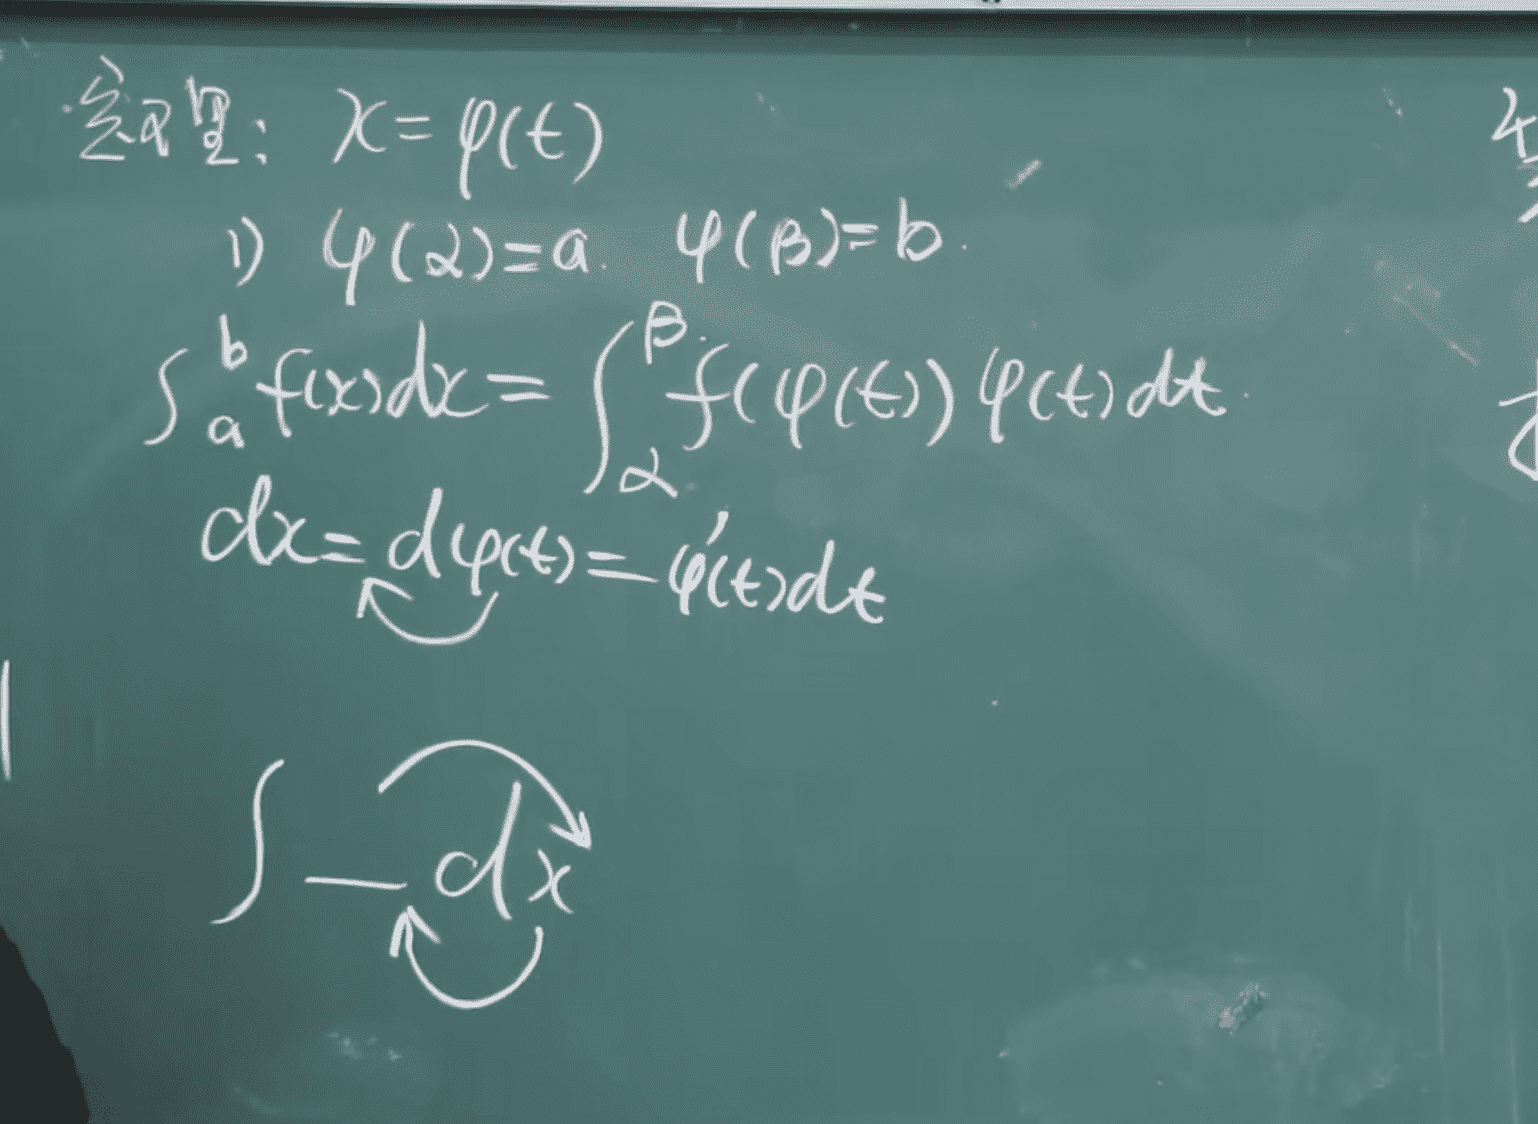 定理: x=φ(t)
1) φ(α)=a. φ(β)=b.
∫_a^b f(x)dx=∫_α^β f(φ(t))φ(t)dt.
dx=dφ(t)=φ'(t)dt
∫_dx